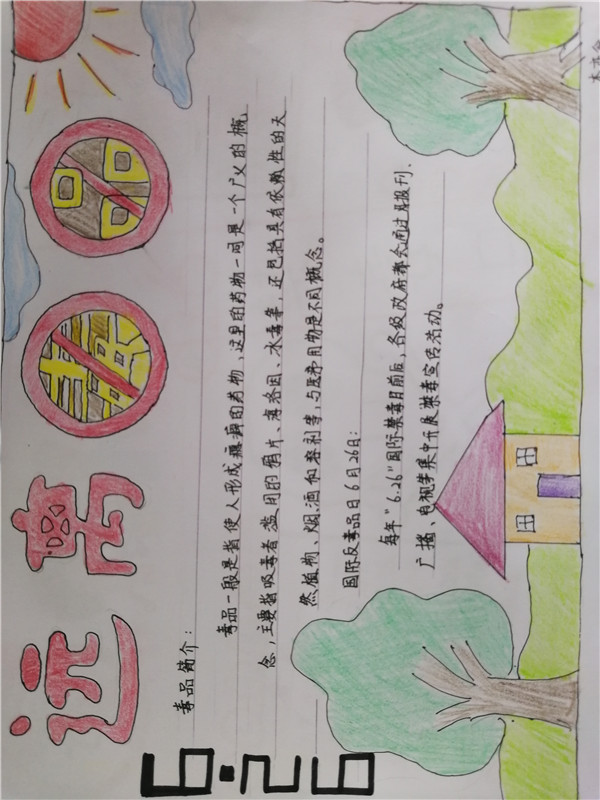 远离毒品
6·26
毒品简介：
毒品一般是指使人形成瘾癖的药物，这里的药物一词是一个广义的概
念，主要指吸毒者滥用的鸦片、海洛因、冰毒等，还包括具有依赖性的天
然植物、烟、酒和溶剂等，与医疗用物是不同概念。
国际反毒品日6月26日：
每年“6.26”国际禁毒日前后，各级政府都会通过报刊、
广播、电视等集中开展禁毒宣传活动。